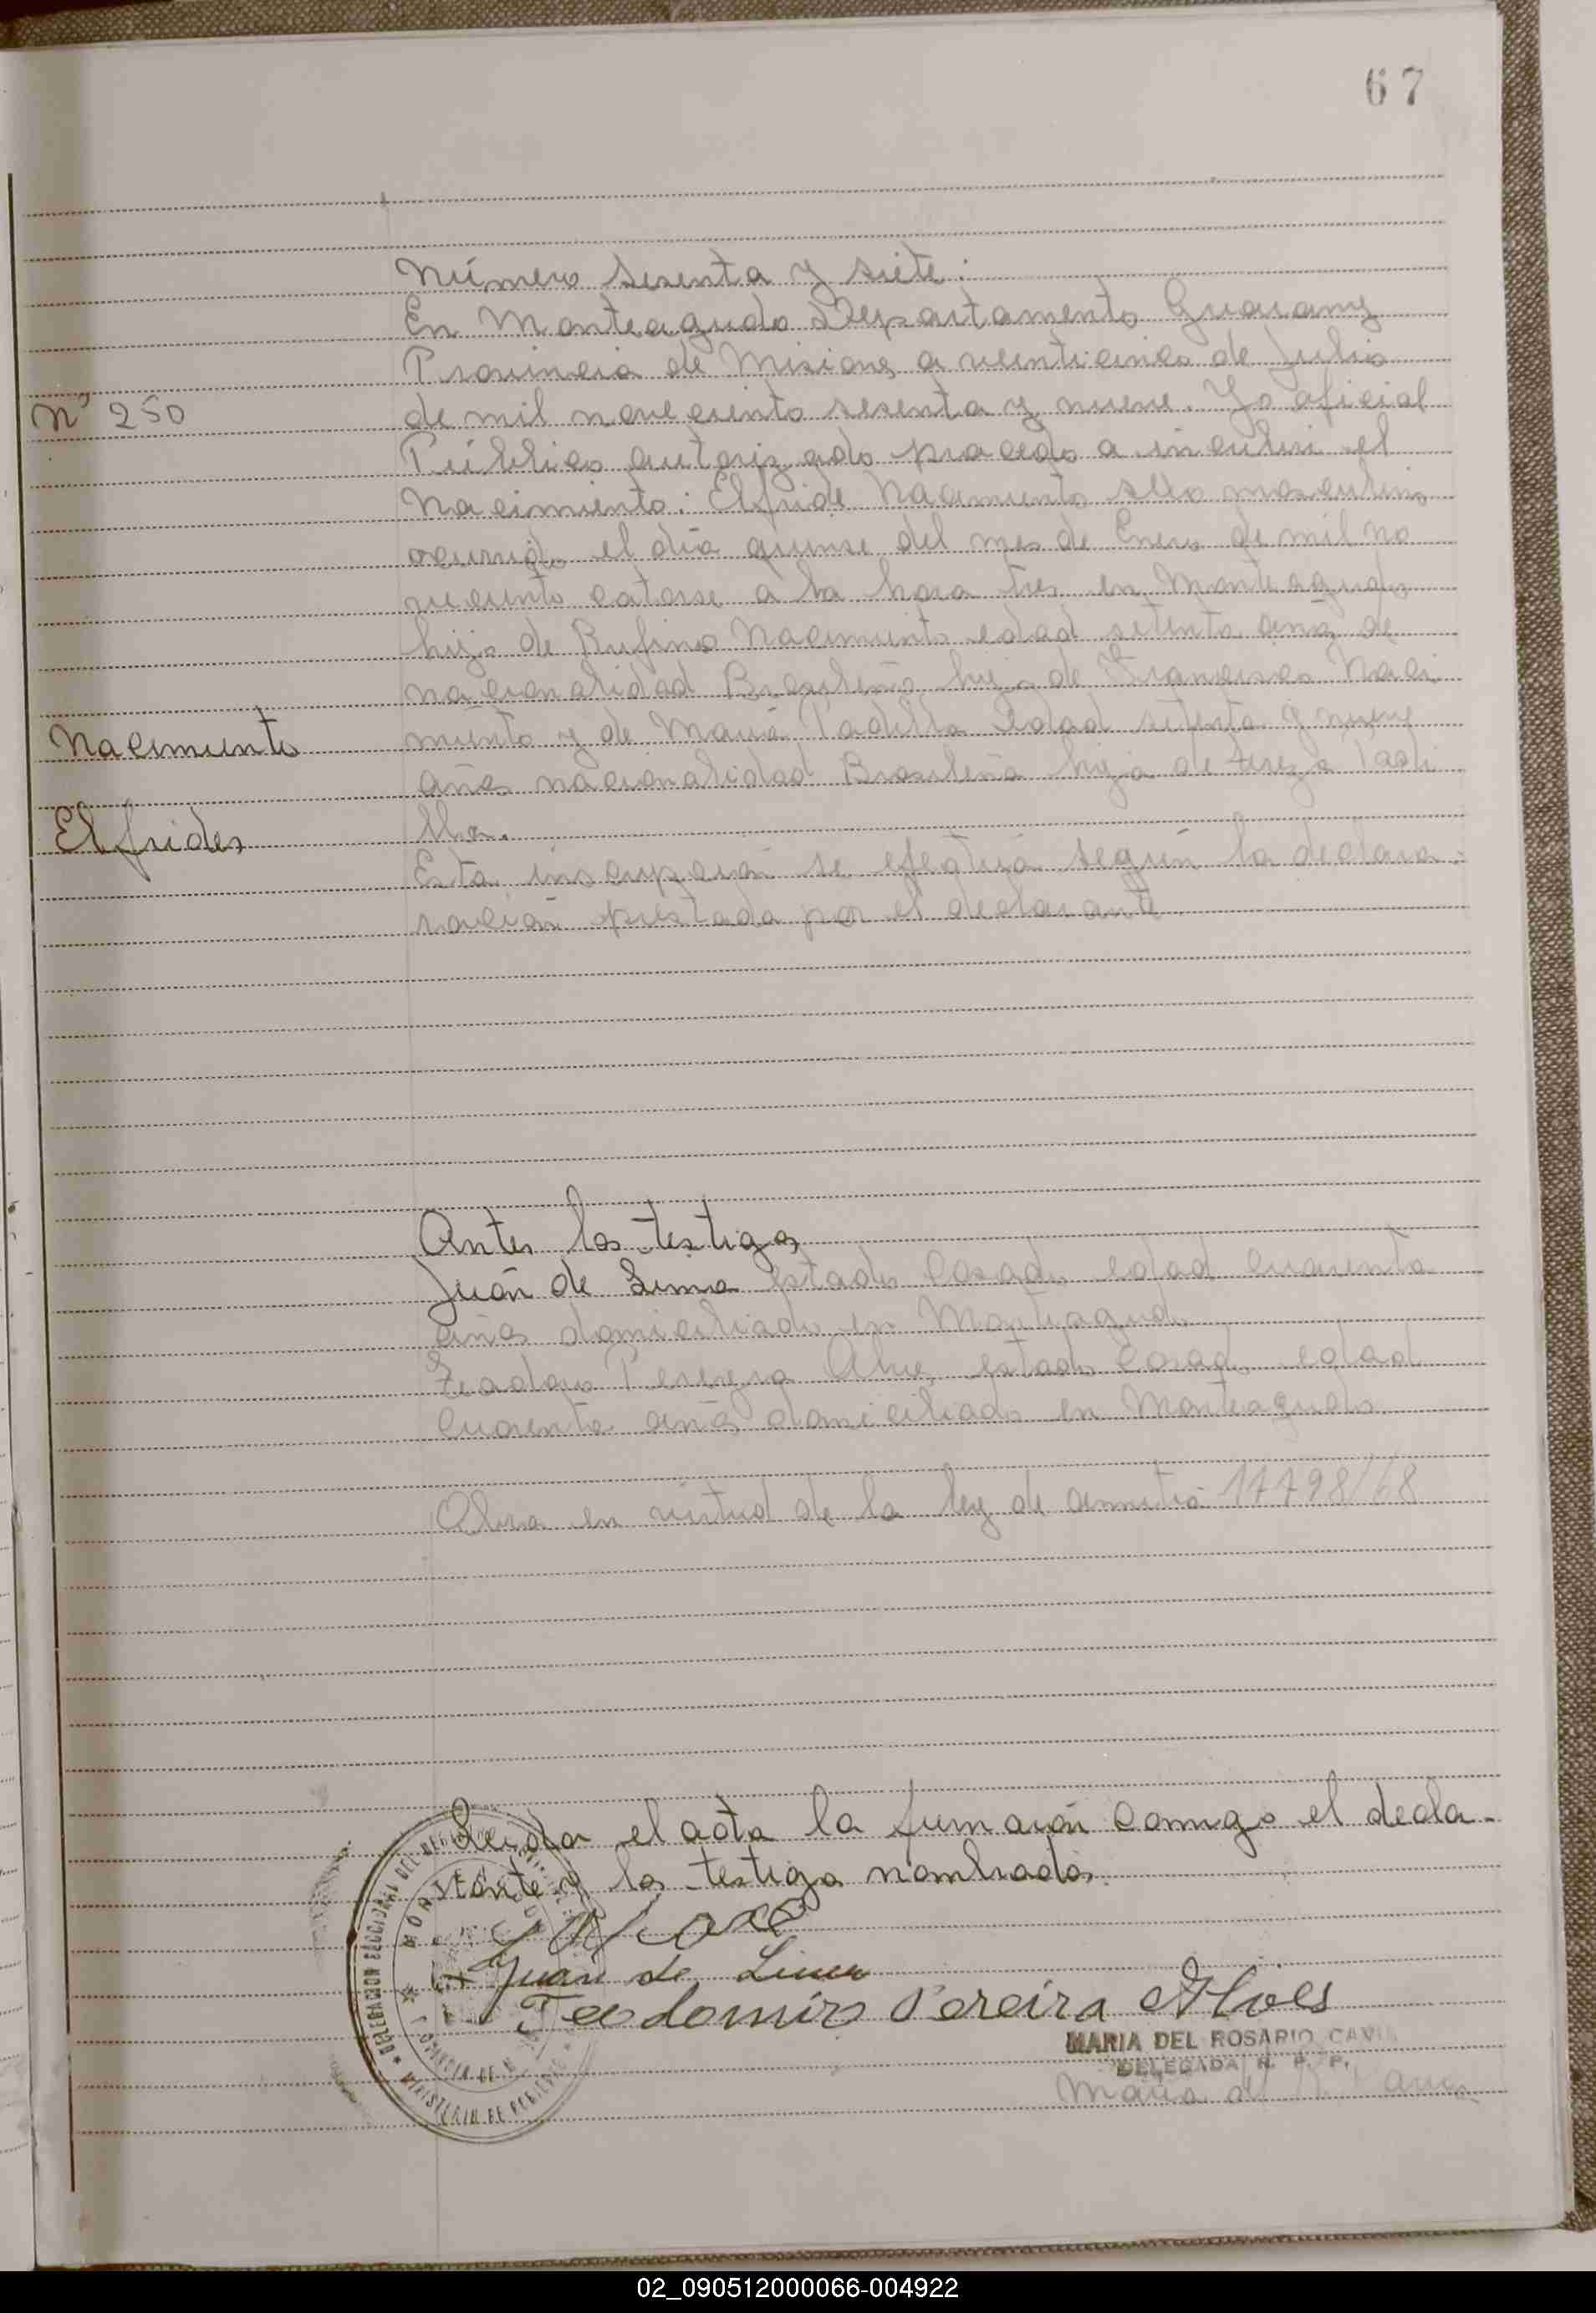 67
Número sesenta y siete:
En Monteagudo Departamento Guarany
Provincia de Misiones a veinticinco de Julio
Nº 250
de mil noveciento sesenta y nueve. Yo oficial
Público autorizado procedo a inscribir el
Nacimiento: Elfride Nacimiento sexo masculino
ocurrido el día quinse del mes de Enero de mil no
veciento catorse a la hora tres en Monteagudo
hijo de Rufino Nacimiento edad setenta años de
nacionalidad Brasileño hijo de Francisco Naci
Nacimiento
miento y de Maria Padilla Edad setenta y nueve
años nacionalidad Brasileña hija de Tereza Padi
Elfrides
lla.
Esta inscripción se efectuá según la declara-
ración prestada por el declarante
Antes los testigos
Juán de Lima estado Casado edad cuarenta
años domiciliado en Monteagudo
Pereyra Alves estado Casado edad
cuarenta años domiciliado en Monteagudo.
Obra en virtud de la ley de amnitia 17798/68
Leida el acta la firmarón Comigo el decla-
rante y los testigos nombrados.
Juan de Lima
Teodomiro Pereira Alves
MARIA DEL ROSARIO
DELEGADA R. P. P.
Maria del
DELEGACION SECCIONAL DEL REGISTRO
MINISTERIO DE GOBIERNO
02_090512000066-004922